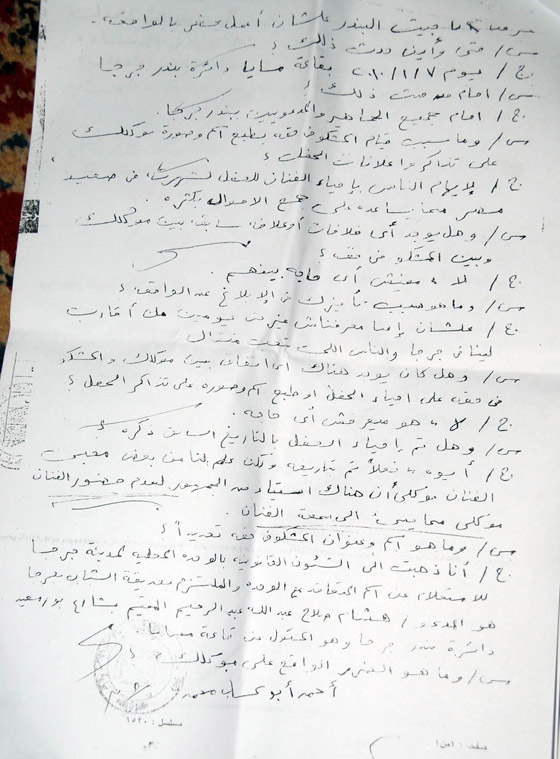 جيت البندر علشان أعمل محضر بالواقعة.
س/ متى وأين حدث ذلك ؟
ج/ يوم ٢٠١٠/١/٧ بقاعة مسايا دائرة بندر جرجا
س/ امام من حدث ذلك ؟
ج/ امام جميع الجماهير والمدعويين ببندر جرجا.
س/ وما سبب قيام المشكو في حقه بطبع اسم وصورة موكلك
على تذاكر واعلانات الحفل ؟
ج/ لإيهام الناس بإحياء الفنان للحفل لشهرته في صعيد
مصر مما يساعده على جمع الاموال بكثره.
س/ وهل يوجد أى خلافات أو علاقة سابقة بين موكلك
وبين المشكو في حقه ؟
ج/ لا ، مفيش أى حاجه بينهم.
س/ وما هو سبب تأخيرك في الإبلاغ عن الواقعة ؟
ج/ علشان إحنا معرفناش غير من يومين من أقارب
لينا في جرجا والناس اللى
س/ وهل كان يوجد هناك اى اتفاق بين موكلك والمشكو
في حقه على احياء الحفل او طبع اسم وصوره على تذاكر الحفل ؟
ج/ لا ، هو ميعرفش أى حاجه.
س/ وهل تم إحياء الحفل بالتاريخ السابق ذكره ؟
ج/ أيوه ، فعلاً تم بتاريخه ولكن علم لنا من بعض محبى
الفنان موكلى أن هناك استياء من الجمهور لعدم حضور الفنان
موكلى مما يسئ الى سمعة الفنان.
س/ وما هو اسم وعنوان المشكو في حقه تحديداً ؟
ج/ أنا ذهبت الى الشئون القانونية بالوحده المحليه لمدينة جرجا
للاستعلام عن اسم المتعاقد مع الوحده والملتزم بحديقة الشباب بجرجا
هو المدعو / هشام صلاح عبد اللاه عبد الرحيم المقيم بشارع بورسعيد
دائرة بندر جرجا وهو المسئول عن قاعة مسايا.
س/ وما هو الضرر الواقع على موكلك ؟
أحمد أبو محمد
مسلسل : ١٥٢٠